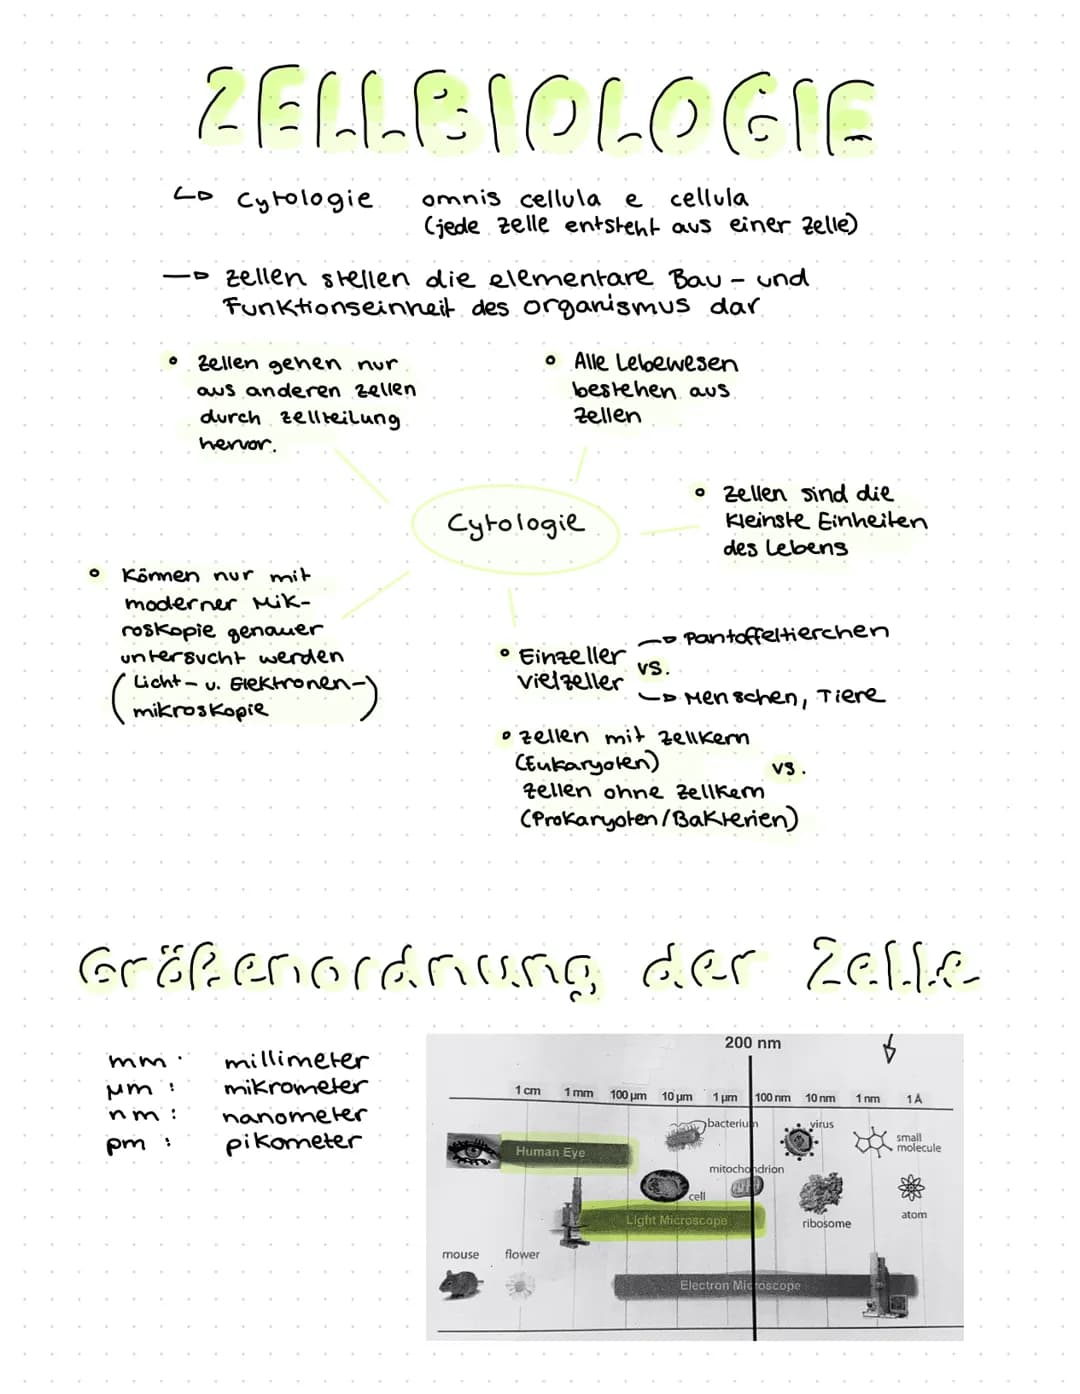 ZELLBIOLOGIE
↳ Cytologie omnis cellula e cellula
(jede Zelle entsteht aus einer Zelle)
→ Zellen stellen die elementare Bau- und
Funktionseinheit des Organismus dar
• Zellen gehen nur
aus anderen Zellen
durch Zellteilung
hervor.
• Alle Lebewesen
bestehen aus
Zellen
Cytologie
• Zellen sind die
kleinste Einheiten
des Lebens
• Können nur mit
moderner Mik-
roskopie genauer
untersucht werden
(Licht- u. Elektronen-
mikroskopie)
• Einzeller → Pantoffeltierchen
vs.
Vielzeller ↳ Menschen, Tiere
• Zellen mit Zellkern
(Eukaryoten) vs.
Zellen ohne Zellkern
(Prokaryoten/Bakterien)
Größenordnung der Zelle
mm: millimeter
µm: mikrometer
nm: nanometer
pm: pikometer
200 nm
1 cm 1 mm 100 µm 10 µm 1 µm 100 nm 10 nm 1 nm 1 Å
bacterium virus
small
molecule
Human Eye
mitochondrion
cell
atom
Light Microscope
ribosome
mouse flower
Electron Microscope